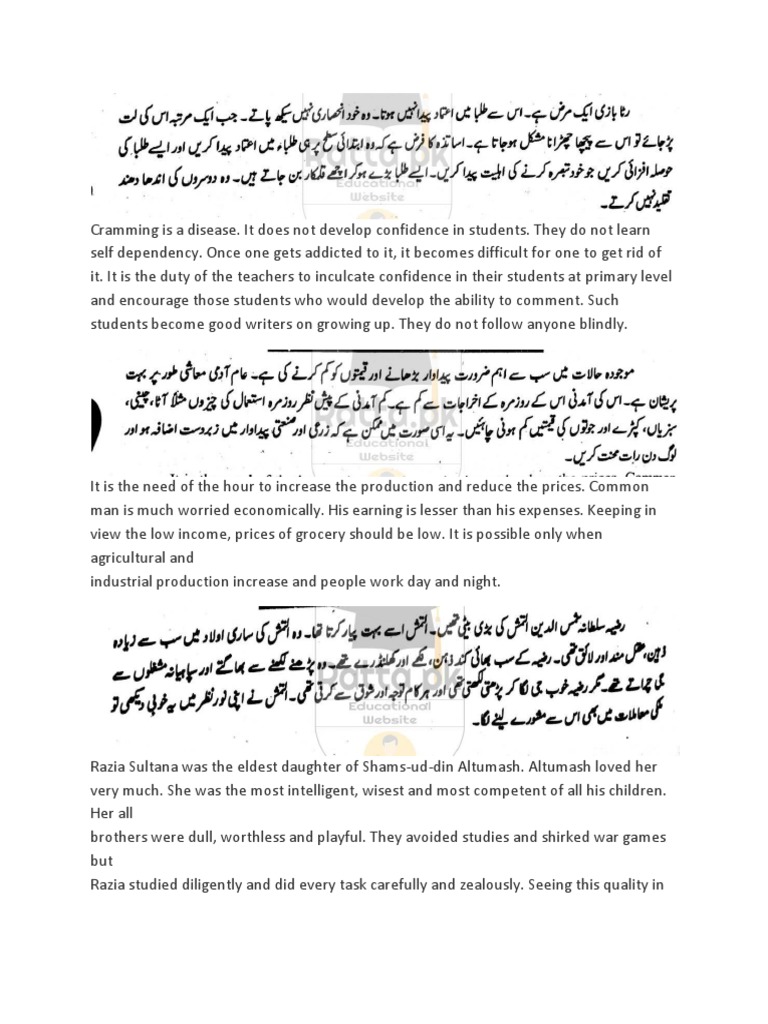 رٹا بازی ایک مرض ہے۔ اس سے طلبا میں اعتماد پیدا نہیں ہوتا۔ وہ خود انحصاری نہیں سیکھ پاتے۔ جب ایک مرتبہ اس کی لت
پڑ جائے تو اس سے پیچھا چھڑانا مشکل ہو جاتا ہے۔ اساتذہ کا فرض ہے کہ وہ ابتدائی سطح پر ہی طلباء میں اعتماد پیدا کریں اور ایسے طلبا کی
حوصلہ افزائی کریں جو خود تبصرہ کرنے کی اہلیت پیدا کریں۔ ایسے طلبا بڑے ہو کر اچھے قلمکار بن جاتے ہیں۔ وہ دوسروں کی اندھا دھند
تقلید نہیں کرتے۔
Ratta.pk
Educational
Website
Cramming is a disease. It does not develop confidence in students. They do not learn
self dependency. Once one gets addicted to it, it becomes difficult for one to get rid of
it. It is the duty of the teachers to inculcate confidence in their students at primary level
and encourage those students who would develop the ability to comment. Such
students become good writers on growing up. They do not follow anyone blindly.
موجودہ حالات میں سب سے اہم ضرورت پیداوار بڑھانے اور قیمتوں کو کم کرنے کی ہے۔ عام آدمی معاشی طور پر بہت
پریشان ہے۔ اس کی آمدنی اس کے روزمرہ کے اخراجات سے کم ہے۔ کم آمدنی کے پیش نظر روزمرہ استعمال کی چیزوں مثلاً آٹا، چینی،
سبزیاں، کپڑے اور جوتوں کی قیمتیں کم ہونی چاہئیں۔ یہ اسی صورت میں ممکن ہے کہ زرعی اور صنعتی پیداوار میں زبردست اضافہ ہو اور
لوگ دن رات محنت کریں۔
Ratta.pk
Educational
Website
It is the need of the hour to increase the production and reduce the prices. Common
man is much worried economically. His earning is lesser than his expenses. Keeping in
view the low income, prices of grocery should be low. It is possible only when
agricultural and
industrial production increase and people work day and night.
رضیہ سلطانہ شمس الدین التمش کی بڑی بیٹی تھیں۔ التمش اسے بہت پیار کرتا تھا۔ وہ التمش کی ساری اولاد میں سب سے زیادہ
ذہین، عقل مند اور لائق تھی۔ رضیہ کے سب بھائی کند ذہن، نکمے اور کھلنڈرے تھے۔ وہ پڑھنے لکھنے سے بھاگتے اور سپاہیانہ مشغلوں سے
جی چراتے تھے۔ مگر رضیہ خوب جی لگا کر پڑھتی لکھتی تھی اور ہر کام توجہ اور شوق سے کرتی تھی۔ التمش نے اپنی نور نظر میں یہ خوبی دیکھی تو
ملکی معاملات میں بھی اس سے مشورے لینے لگا۔
Ratta.pk
Educational
Website
Razia Sultana was the eldest daughter of Shams-ud-din Altumash. Altumash loved her
very much. She was the most intelligent, wisest and most competent of all his children.
Her all
brothers were dull, worthless and playful. They avoided studies and shirked war games
but
Razia studied diligently and did every task carefully and zealously. Seeing this quality in